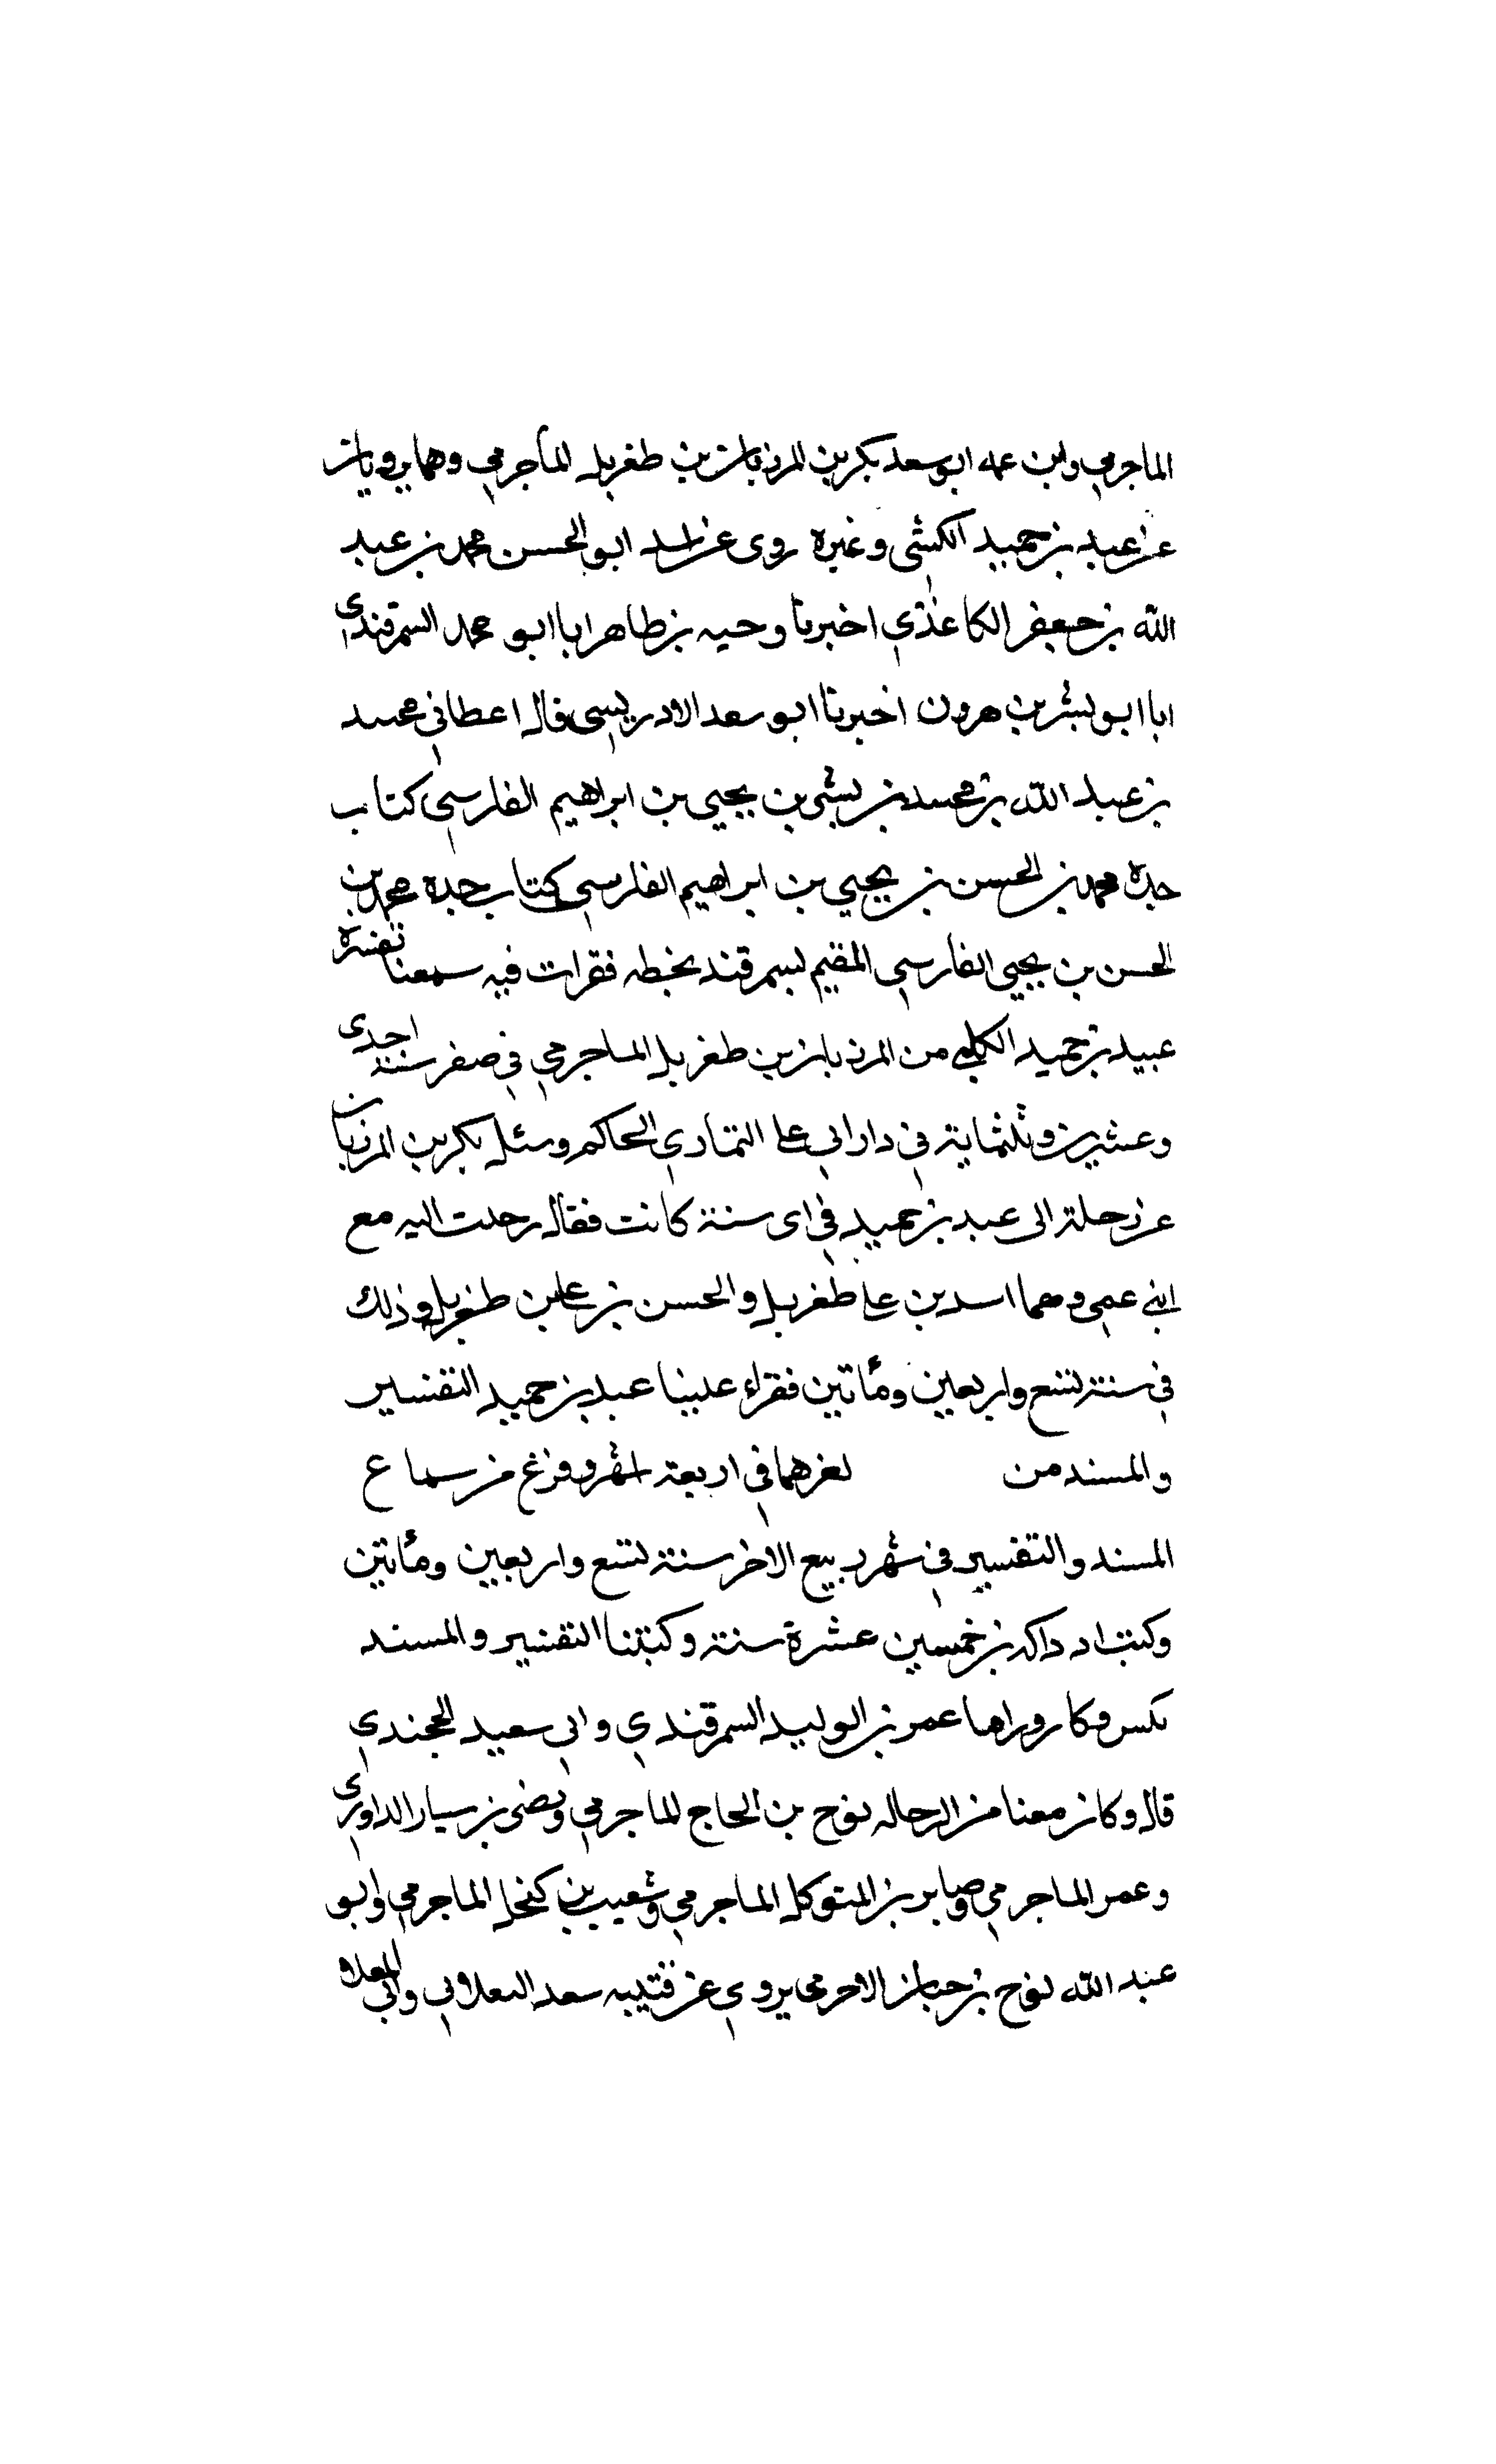 الماجرمي وابن عمه ابو سعد بكر بن المرزبان بن طغربل الماجرمي وهما يرويان
عن عبد بن حميد الكشي وغيره روى عن اسد ابو الحسن محمد بن عبد
الله بن جعفر الكاغذي اخبرنا وجيه بن طاهر ابا ابو محمد السمرقندي
ابا ابو بشر بن هرون اخبرنا ابو سعد الادريسي قال اعطاني محمد
بن عبد الله بن محمد بن بشي بن يحيي بن ابراهيم الفارسي كتاب
جده محمد بن الحسن بن يحيي بن ابراهيم الفارسي كتاب جده محمد بن
الحسن بن يحيي الفارسي المقيم بسمرقند بخطه فقرات فيه سمعنا تفسره
عبيد بن حميد من المرزبان بن طغربل الماجرمي في صفر سنة احدى
وعشرين وثلثماية في دار ابي علي الحاكم وسئل بكر بن المرزبان
عن رحلته الى عبد بن حميد في اى سنة كانت فقال رحلت اليه مع
ابني عمي وهما اسد بن علي طغربل والحسن بن علي بن طغربل وذلك
في سنة تسع واربعين ومأتين فقراء علينا عبد بن حميد التفسير
والمسند من في اربعة اشهر وفرغ من سماع
المسند والتفسير في شهر ربيع الاخر سنة تسع واربعين ومأتين
وكنت بن خمسين عشرة سنة وكتبنا التفسير والمسند
بكس عمر بن الوليد السمرقندي وابي سعيد الخجندي
قال وكان معنا من الرحاله نوح بن الحاج الماجرمي بن سيار الداوري
وعمر الماجرمي وصابر بن المتوكل الماجرمي وشعيب بن الماجرمي وابو
عبد الله نوح بن يروي عن قتيبه سعد وابي